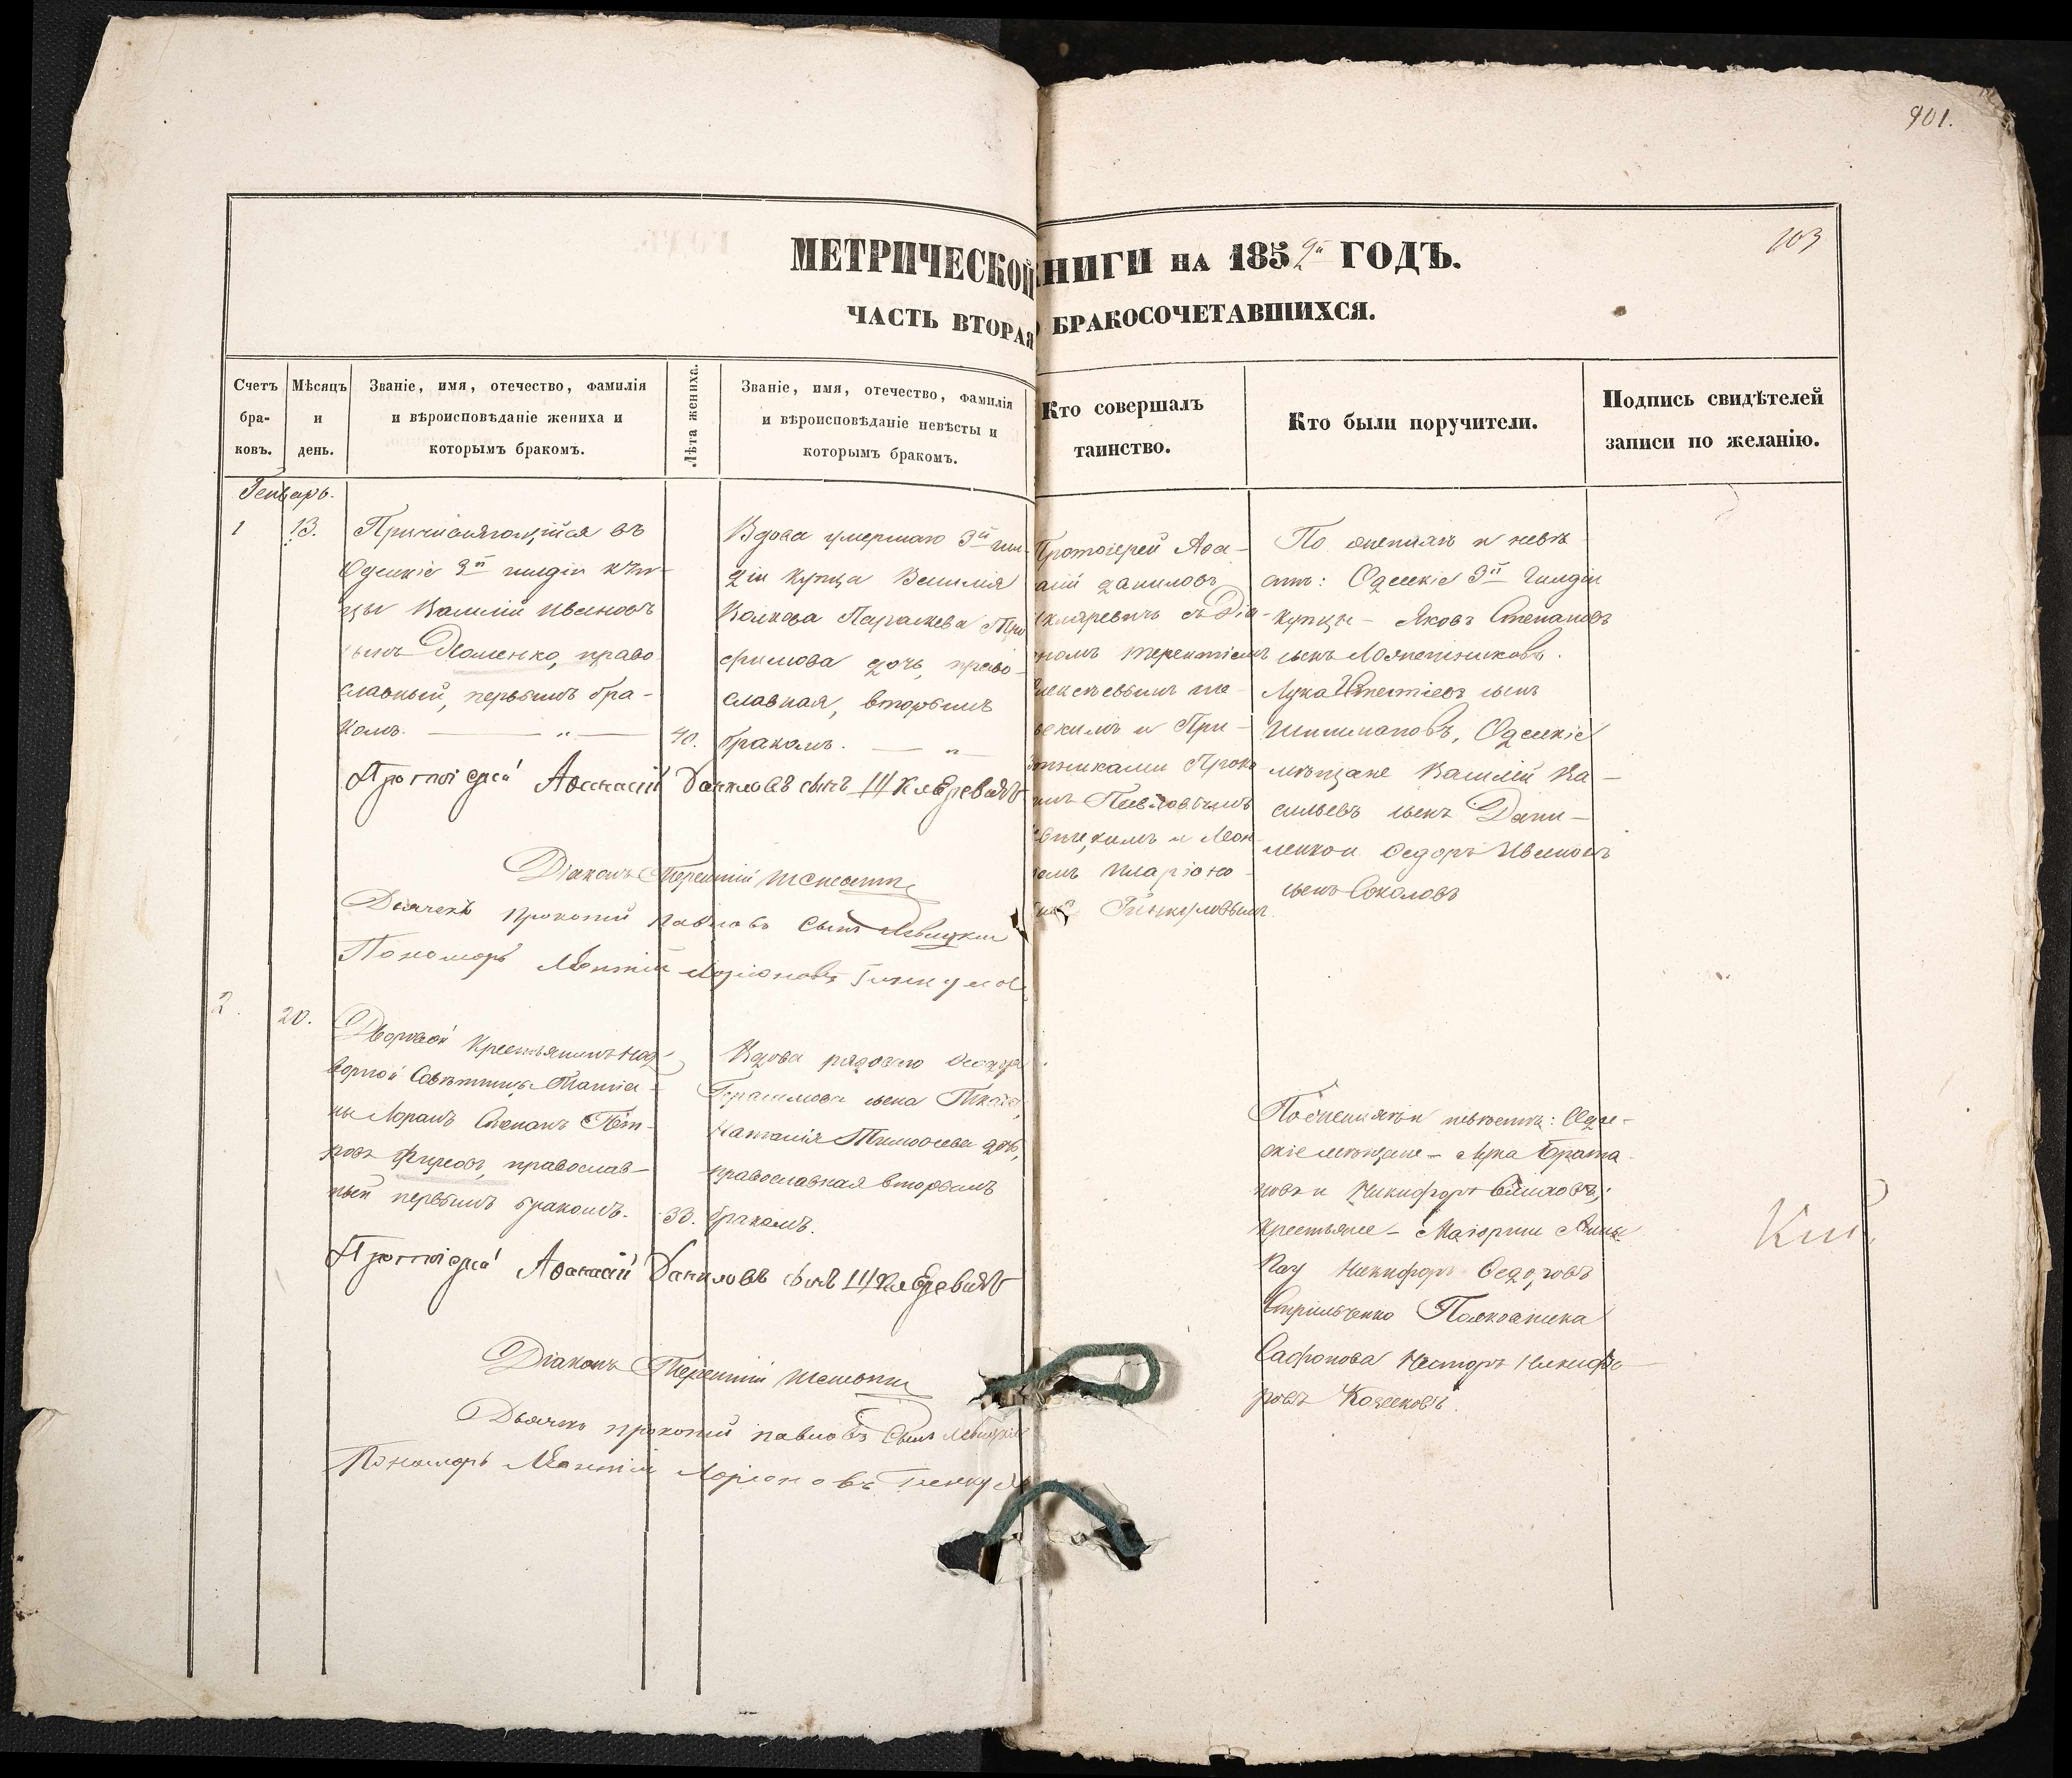 901.
103
МЕТРИЧЕСКОЙ КНИГИ НА 1859й ГОДЪ.
ЧАСТЬ ВТОРАЯ О БРАКОСОЧЕТАВШИХСЯ.
Счетъ бра- ковъ.
Мѣсяцъ и день.
Званіе, имя, отечество, фамилія
и вѣроисповѣданіе жениха и
которымъ бракомъ.
Лѣта жениха.
Званіе, имя, отечество, фамилія
и вѣроисповѣданіе невѣсты и
которымъ бракомъ.
Кто совершалъ
таинство.
Кто были поручители.
Подпись свидѣтелей
записи по желанію.
Генварь.
1
13.
Причисляющійся въ
Одескіе 3й гилдіи куп-
цы Василій Ивановъ
сынъ Доменко, право
славный, первымъ бра-
комъ.
40.
Вдова умершаго 3й гил-
діи купца Василія
Волкова Параскева Тро
фимова дочь, право-
славная, вторымъ
бракомъ.
Протоіерей Аѳа-
Даниловъ
Шкляревичъ съ Діа-
кономъ Терентіемъ
Алексѣевымъ
и При-
четниками Проко
Павловымъ
и Леон-
Иларіоно
Гинкуловымъ
По женихѣ и невѣ-
стѣ: Одескіе 3й Гилдіи
купцы - Яковъ Степановъ
сынъ
Лука сынъ
Шишмановъ, Одескіе
мѣщане Василій Ва-
сильевъ сынъ Дани-
ленко и Ѳедоръ Ивановъ
сынъ Соколовъ
Протоіерей Аѳанасій Даниловъ сынъ Шкляревичъ
Діаконъ Терентій
Дьячекъ Прокопій Павловъ сынъ Левицкій
Пономарь Леонтій Ларіоновъ Гинкулов
2.
20.
Дворовой Крестьянинъ над-
ворной Совѣтницы Татіа-
ны Лорамъ Степанъ Пет-
ровъ Фирсовъ, православ-
ный первымъ бракомъ.
33.
Вдова рядоваго Ѳедора
Герасимова сына
Наталія Тимоѳеева дочь,
православная вторымъ
бракомъ.
По женихѣ и невѣстѣ: Оде-
скіе мѣщане - Лука Брата
новъ и Никифоръ
крестьяне - Маіорши Анны
Рау Никифоръ Ѳедоровъ
Стрильченко Полковника
Сафонова Несторъ Никифо-
ровъ
Протоіерей Аѳанасій Даниловъ сынъ Шкляревичъ
Діаконъ Терентій
Дьячекъ Прокопій Павловъ сынъ Левицкій
Пономарь Леонтій Ларіоновъ Гинкул